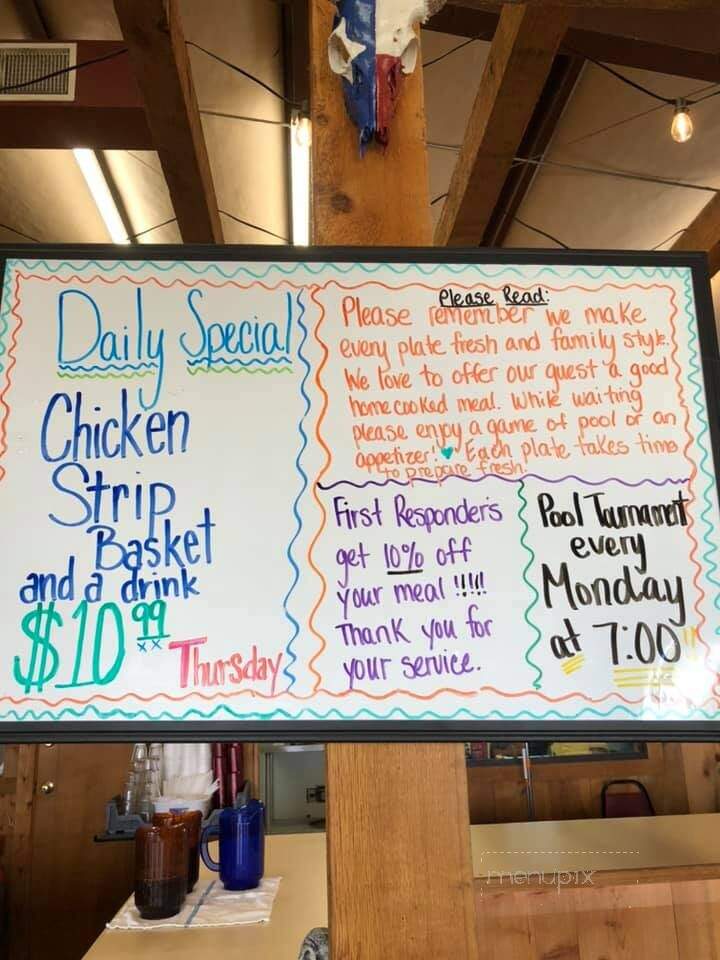 Daily Special
Chicken
Strip
Basket
and a drink
$10.99
xx
Thursday
Please Read:
Please remember we make
every plate fresh and family style.
We love to offer our guest a good
home cooked meal. While waiting
please enjoy a game of pool or an
appetizer! Each plate takes time
to prepare fresh.
First Responders
get 10% off
your meal !!!!!
Thank you for
your service.
Pool Tournament
every
Monday
at 7:00!!
menupix